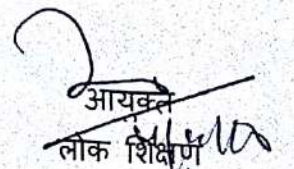 आयुक्त
लोक शिक्षण